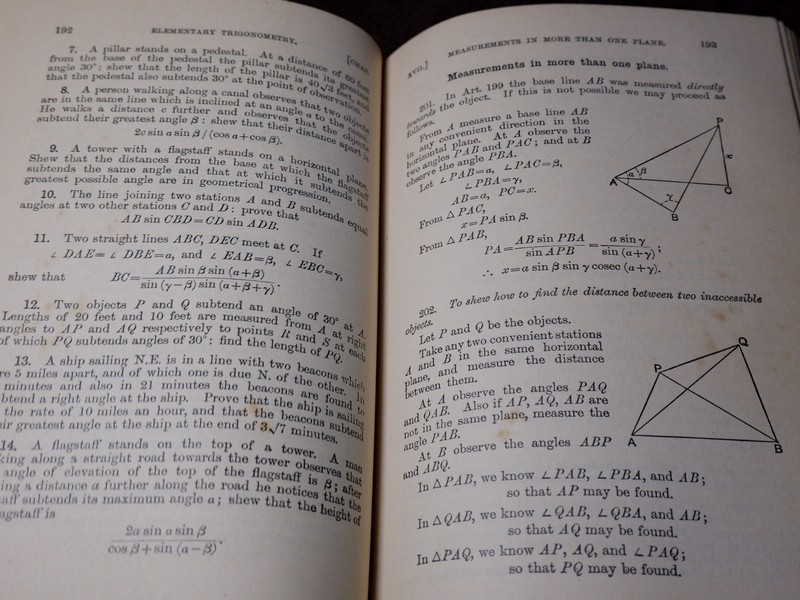 192 ELEMENTARY TRIGONOMETRY. [CHAP.
7. A pillar stands on a pedestal. At a distance of 60 feet
from the base of the pedestal the pillar subtends its greatest
angle 30°: shew that the length of the pillar is 40√3 feet, and
that the pedestal also subtends 30° at the point of observation.
8. A person walking along a canal observes that two objects
are in the same line which is inclined at an angle α to the canal.
He walks a distance c further and observes that the objects
subtend their greatest angle β: shew that their distance apart is
2c sin α sin β / (cos α + cos β).
9. A tower with a flagstaff stands on a horizontal plane.
Shew that the distances from the base at which the flagstaff
subtends the same angle and that at which it subtends the
greatest possible angle are in geometrical progression.
10. The line joining two stations A and B subtends equal
angles at two other stations C and D: prove that
AB sin CBD = CD sin ADB.
11. Two straight lines ABC, DEC meet at C. If
∠ DAE = ∠ DBE = α, and ∠ EAB = β, ∠ EBC = γ,
shew that BC = AB sin β sin (α+β) / sin (γ−β) sin (α+β+γ).
12. Two objects P and Q subtend an angle of 30° at A.
Lengths of 20 feet and 10 feet are measured from A at right
angles to AP and AQ respectively to points R and S at each
of which PQ subtends angles of 30°: find the length of PQ.
13. A ship sailing N.E. is in a line with two beacons which
re 5 miles apart, and of which one is due N. of the other. In
minutes and also in 21 minutes the beacons are found to
btend a right angle at the ship. Prove that the ship is sailing
the rate of 10 miles an hour, and that the beacons subtend
eir greatest angle at the ship at the end of 3√7 minutes.
14. A flagstaff stands on the top of a tower. A man
king along a straight road towards the tower observes that
angle of elevation of the top of the flagstaff is β; after
ing a distance a further along the road he notices that the
aff subtends its maximum angle α; shew that the height of
agstaff is
2a sin α sin β / cos β + sin (α − β).
XVII.] MEASUREMENTS IN MORE THAN ONE PLANE. 193
Measurements in more than one plane.
201. In Art. 199 the base line AB was measured directly
towards the object. If this is not possible we may proceed as
follows.
From A measure a base line AB
in any convenient direction in the
horizontal plane. At A observe the
two angles PAB and PAC; and at B
observe the angle PBA.
Let ∠ PAB = α, ∠ PAC = β,
∠ PBA = γ,
AB = a, PC = x.
From △ PAC,
x = PA sin β.
From △ PAB,
PA = AB sin PBA / sin APB = a sin γ / sin (α+γ);
∴ x = a sin β sin γ cosec (α+γ).
P
x
α β
A
C
x
B
202. To shew how to find the distance between two inaccessible
objects.
Let P and Q be the objects.
Take any two convenient stations
A and B in the same horizontal
plane, and measure the distance
between them.
At A observe the angles PAQ
and QAB. Also if AP, AQ, AB are
not in the same plane, measure the
angle PAB.
At B observe the angles ABP
and ABQ.
Q
P
A
B
In △ PAB, we know ∠ PAB, ∠ PBA, and AB;
so that AP may be found.
In △ QAB, we know ∠ QAB, ∠ QBA, and AB;
so that AQ may be found.
In △ PAQ, we know AP, AQ, and ∠ PAQ;
so that PQ may be found.